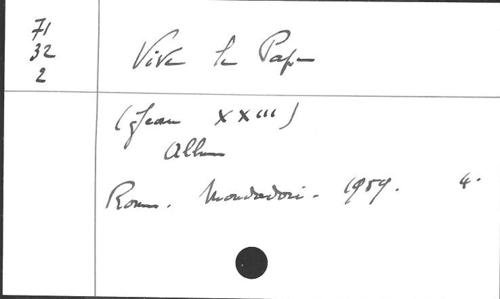 71
32
2
Vive le Pape
(Jean XXIII)
Album
Rome. Mondadori - 1959. 4.